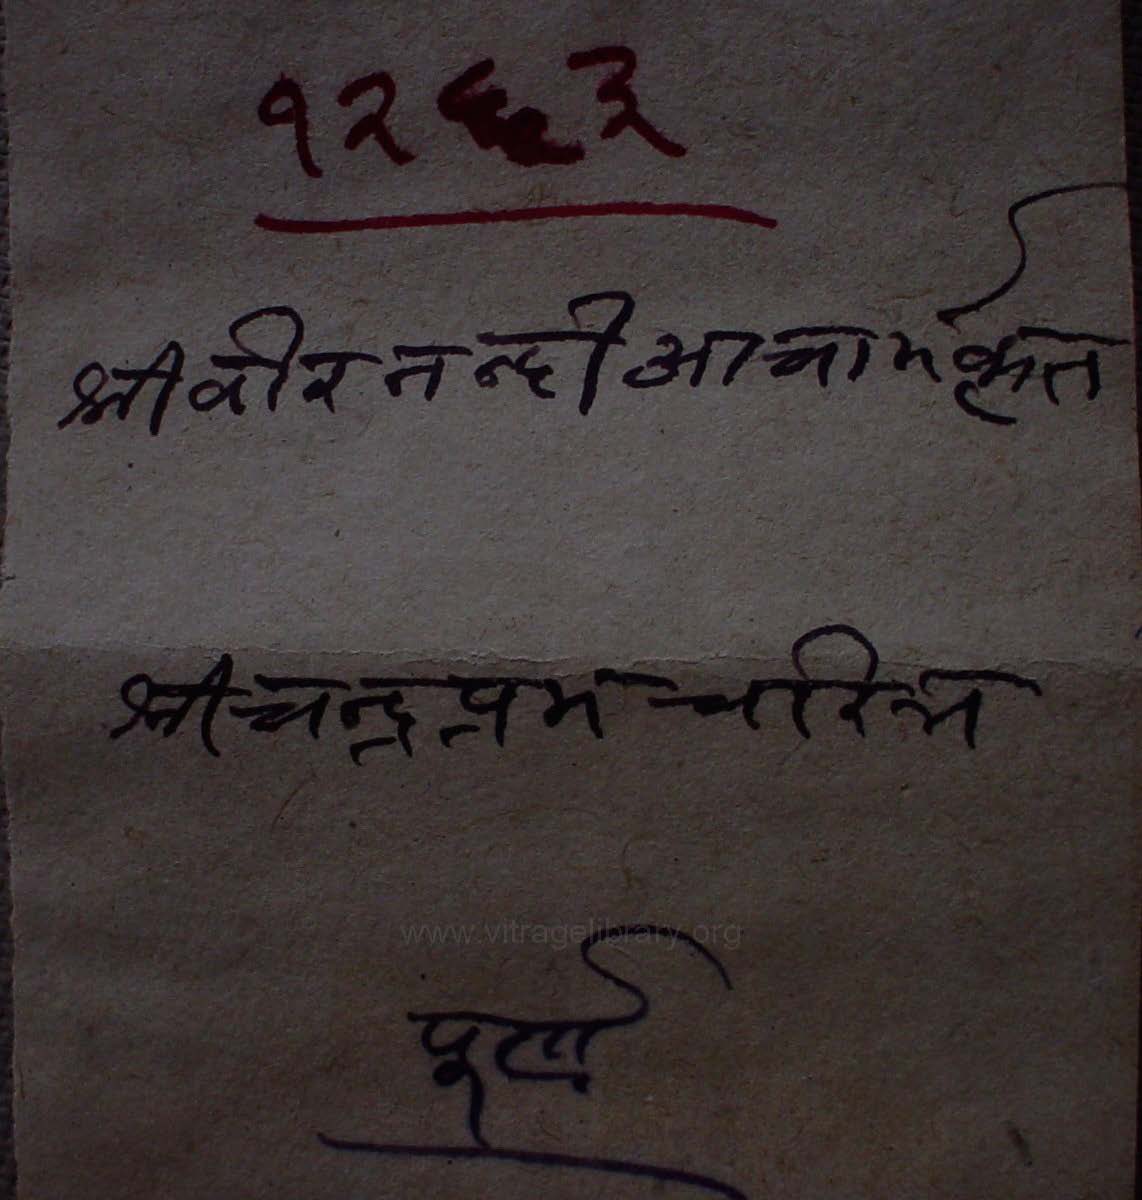 श्री वीर नन्दी आचार्य कृत
श्री चन्द्रप्रभ चरित्र
www.vitragelibrary.org
पूर्ण